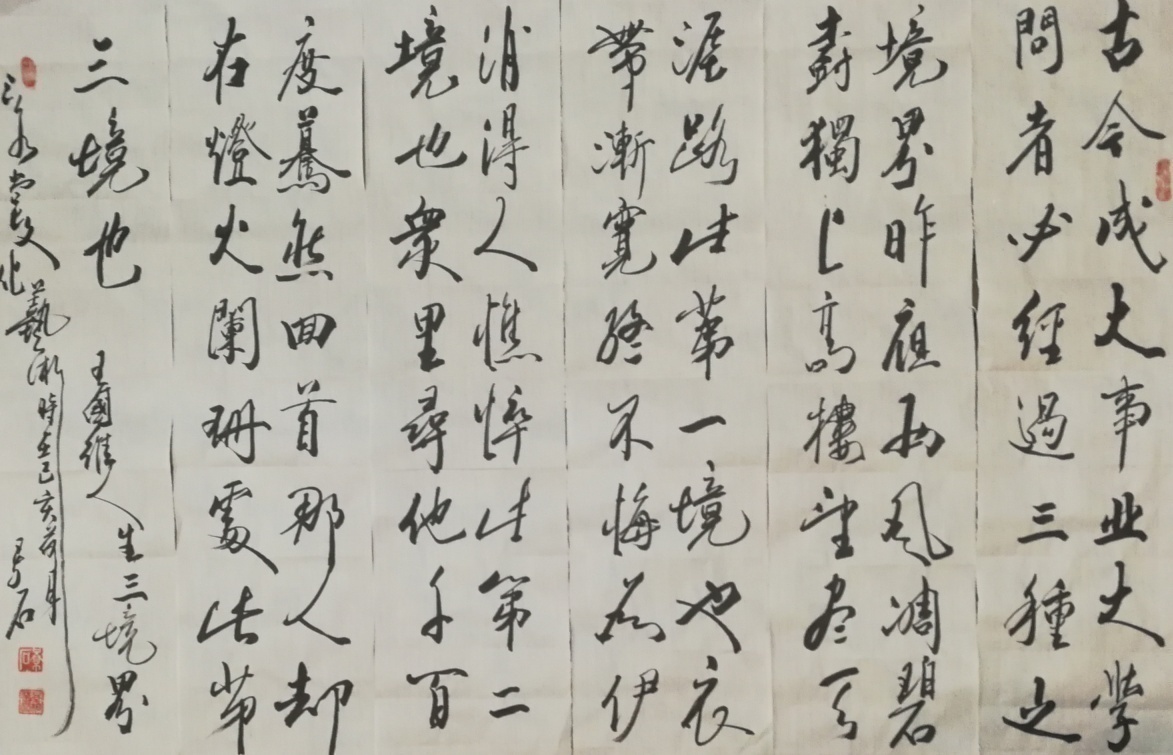 古今成大事业大學
問者必經過三種之
境界昨夜西风凋碧
樹獨上高樓望尽天
涯路此第一境也衣
帶漸寬終不悔为伊
消得人憔悴此第二
境也衆里尋他千百
度驀然回首那人却
在燈火闌珊處此第
三境也
王國維人生三境界
文化藝術時在己亥荷月 石